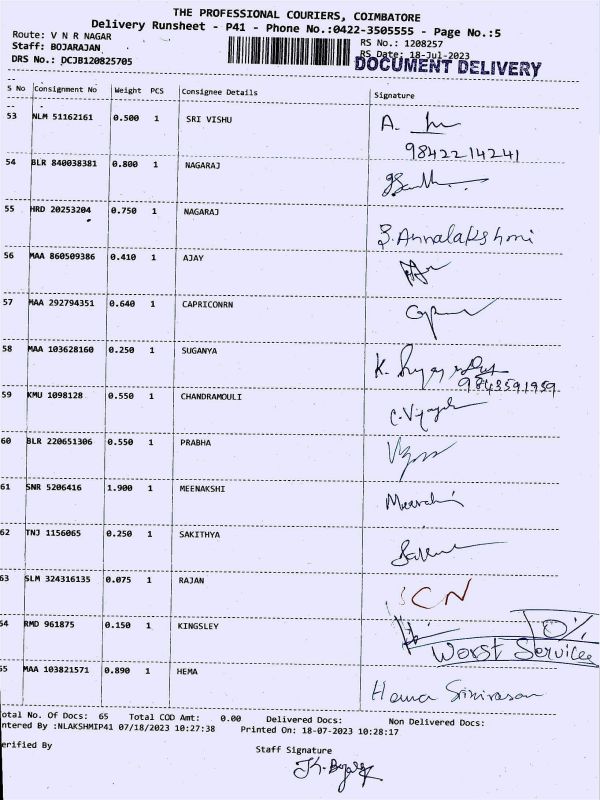 THE PROFESSIONAL COURIERS, COIMBATORE
Delivery Runsheet - P41 - Phone No.:0422-3505555 - Page No.:5
Route: V N R NAGAR RS No.: 1208257
Staff: BOJARAJAN RS Date: 18-Jul-2023
DRS No.: DCJB120825705 DOCUMENT DELIVERY
S No Consignment No Weight PCS Consignee Details Signature
53 NLM 51162161 0.500 1 SRI VISHU A.
9842214241
54 BLR 840038381 0.800 1 NAGARAJ
55 HRD 20253204 0.750 1 NAGARAJ S.Annalakshmi
56 MAA 860509386 0.410 1 AJAY
57 MAA 292794351 0.640 1 CAPRICONRN
58 MAA 103628160 0.250 1 SUGANYA K.
9843591959
59 KMU 1098128 0.550 1 CHANDRAMOULI
60 BLR 220651306 0.550 1 PRABHA
61 SNR 5206416 1.900 1 MEENAKSHI
62 TNJ 1156065 0.250 1 SAKITHYA
63 SLM 324316135 0.075 1 RAJAN SCN
64 RMD 961875 0.150 1 KINGSLEY 0%
Worst Services
65 MAA 103821571 0.890 1 HEMA Hema Srinivasan
otal No. Of Docs: 65 Total COD Amt: 0.00 Delivered Docs: Non Delivered Docs:
ntered By :NLAKSHMIP41 07/18/2023 10:27:38 Printed On: 18-07-2023 10:28:17
erified By Staff Signature